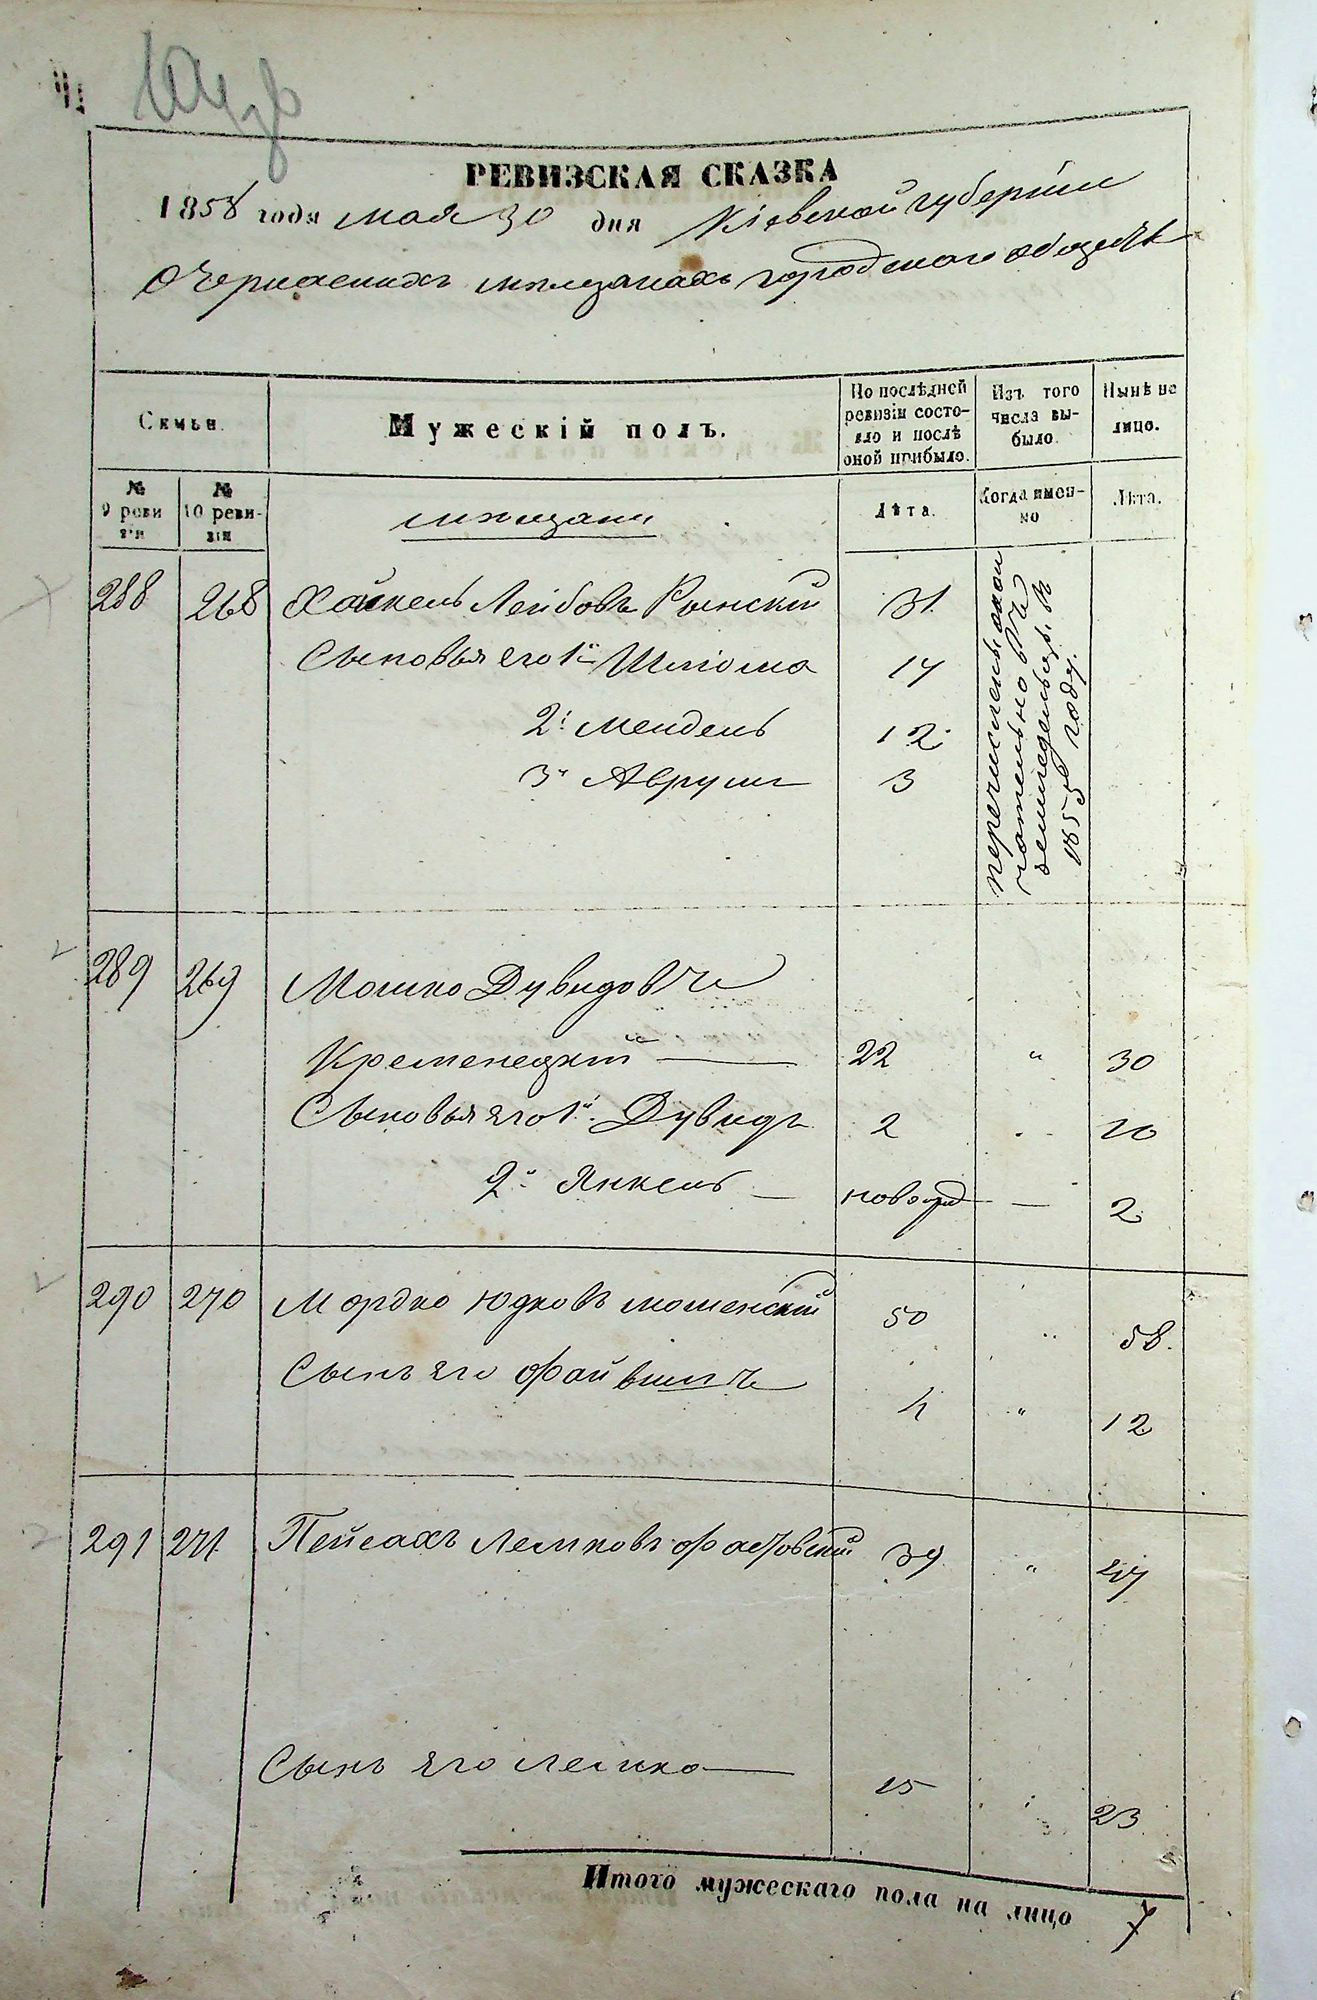 РЕВИЗСКАЯ СКАЗКА
1858 года мая 30 дня Кіевской губерніи
О Черкаскихъ мещанахъ городскаго общества
Семьи.
Мужескій полъ.
По послѣдней ревизіи состояло и послѣ оной прибыло.
Изъ того числа выбыло.
Нынѣ на лицо.
№ 9 ревизіи
№ 10 ревизіи
мещани
Лѣта.
Когда именно
Лѣта.
288 268 Хайкель Лейбовъ Рынскій 31
Сыновья его 1й Шліома 14
2й Мендель 12
3й Аврумъ 3
перечисленъ
земледельцы въ
1855 году.
289 269 Мошко Дувидовъ
Кременецкій 22 " 30
Сыновья его 1й Дувидъ 2 10
2й Янкель — новорожд — 2
290 270 Мордко Юдковъ Мошенскій 50 " 58.
Сынъ его Файвишъ 4 " 12
291 271 Пейсахъ Лемковъ Фастовскій 39 " 47
Сынъ его Лемко 15 23
Итого мужескаго пола на лицо 7